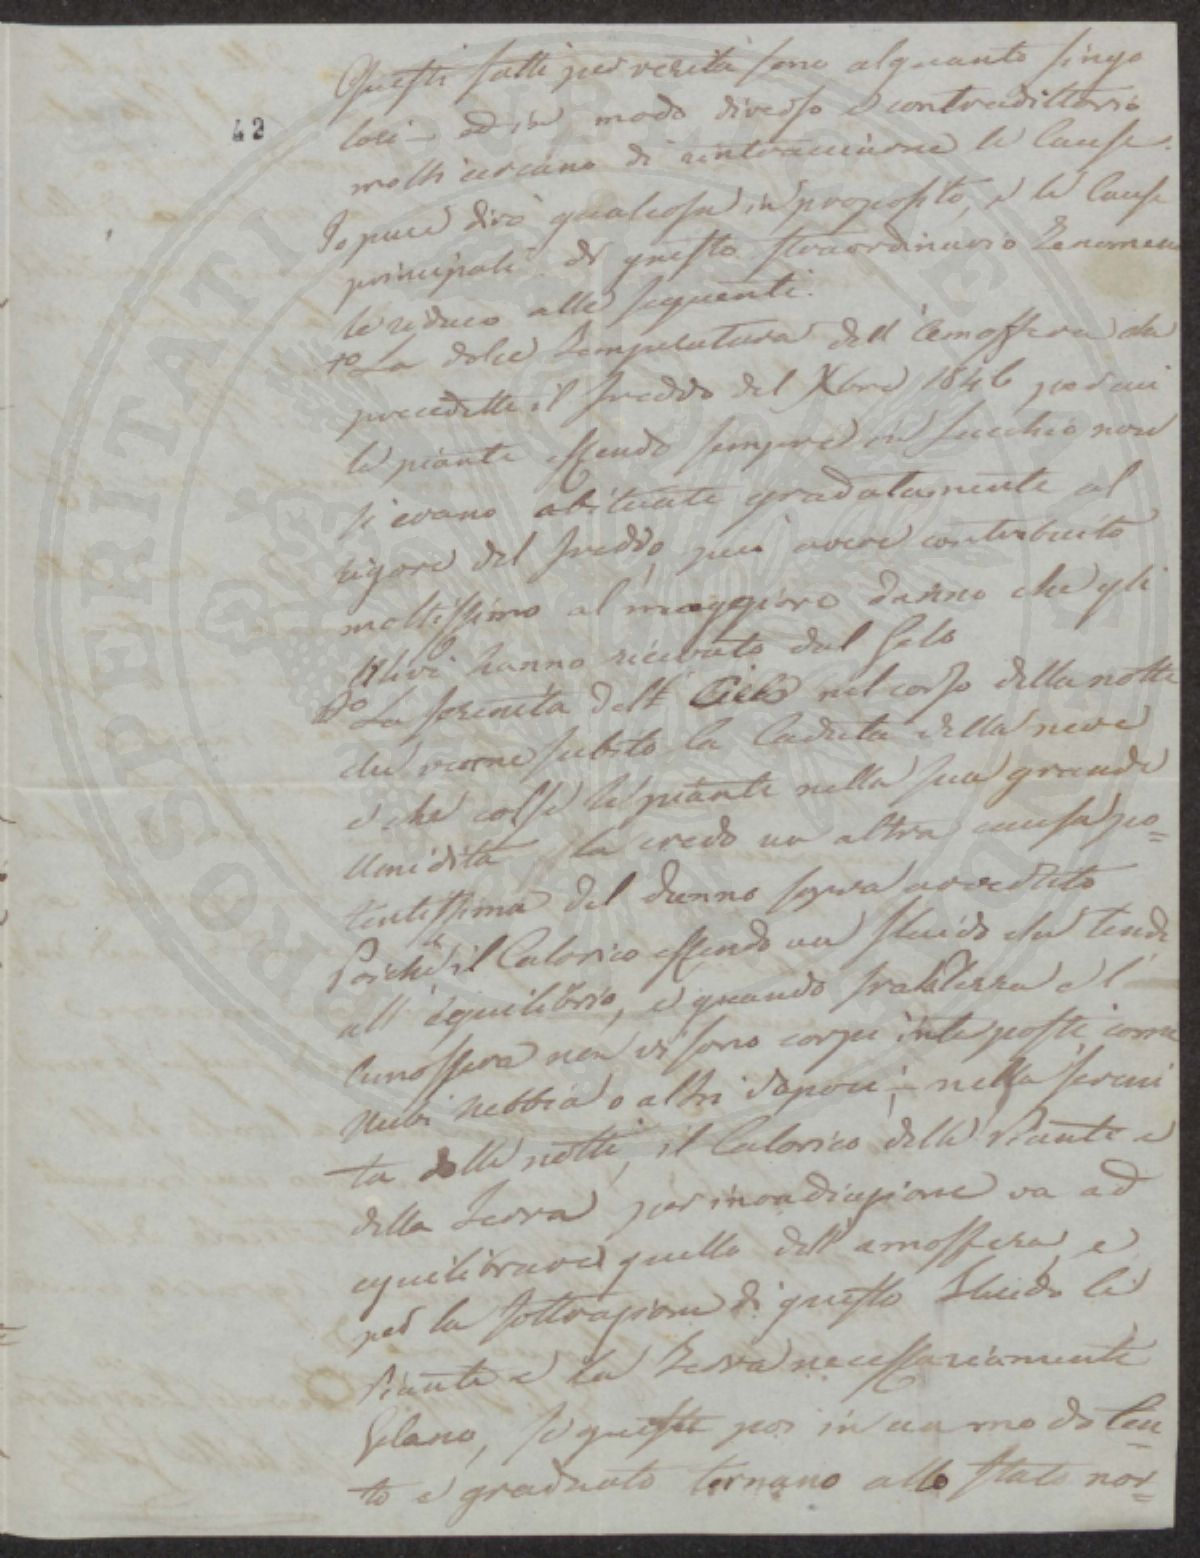 42
Questi fatti per verità sono alquanto singo
lari ed in modo diverso e contradittorio
molti cercano di rintracciarne le Cause.
Io pure dirò qualcosa in proposito, e le Cause
principali di questo straordinario Fenomeno
le riduco alle seguenti.
1º La dolce temperatura dell'Atmosfera che
precedette il freddo del Xbre 1846 per cui
le piante essendo sempre in succhio non
si erano abituate gradatamente al
rigore del freddo, può avere contribuito
moltissimo al maggiore danno che gli
Ulivi hanno ricevuto dal Gelo
2º La serenità del Cielo nel corso della notte
che venne subito la Caduta della neve
e che colse le piante nella sua grande
Umidità la credo un altra causa po=
tentissima del danno sopra avvertito
Poichè il Calorico essendo un fluido che tende
all'equilibrio, e quando fralla Terra e l'
Atmosfera non vi sono corpi interposti, come
Nubi nebbia o altri vapori; nella sereni
ta delle notti, il Calorico delle Piante e
della Terra per irradiazione va ad
equilibrare quello dell'amosfera, e
per la sottrazione di questo Fluido le
Piante e la Terra necessariamente
Gelano, se queste poi in un modo len
to e graduato tornano allo stato nor=